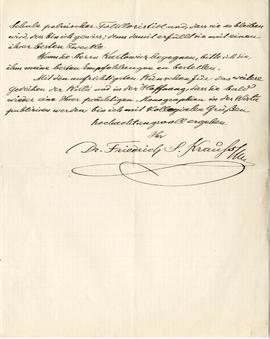 Schule polnischer Folkloristik und, dass sie es bleiben
wird, der bin ich gewiss; denn damit erfüllt sie mit einen
ihrer besten Zwecke.
Wenn Sie Herrn Karłowicz begegnen, bitte ich Sie,
ihm meine besten Empfehlungen zu bestellen.
Mit den aufrichtigsten Wünschen für das weitere
Gedeihen der Wisła und in der Hoffnung, dass Sie bald
wieder eine Ihrer prächtigen Monographien in der Wisła
publiciren werden, bin ich mit kollegialen Grüßen
hochachtungsvoll ergeben
Ihr
Dr. Friedrich S. Krauss